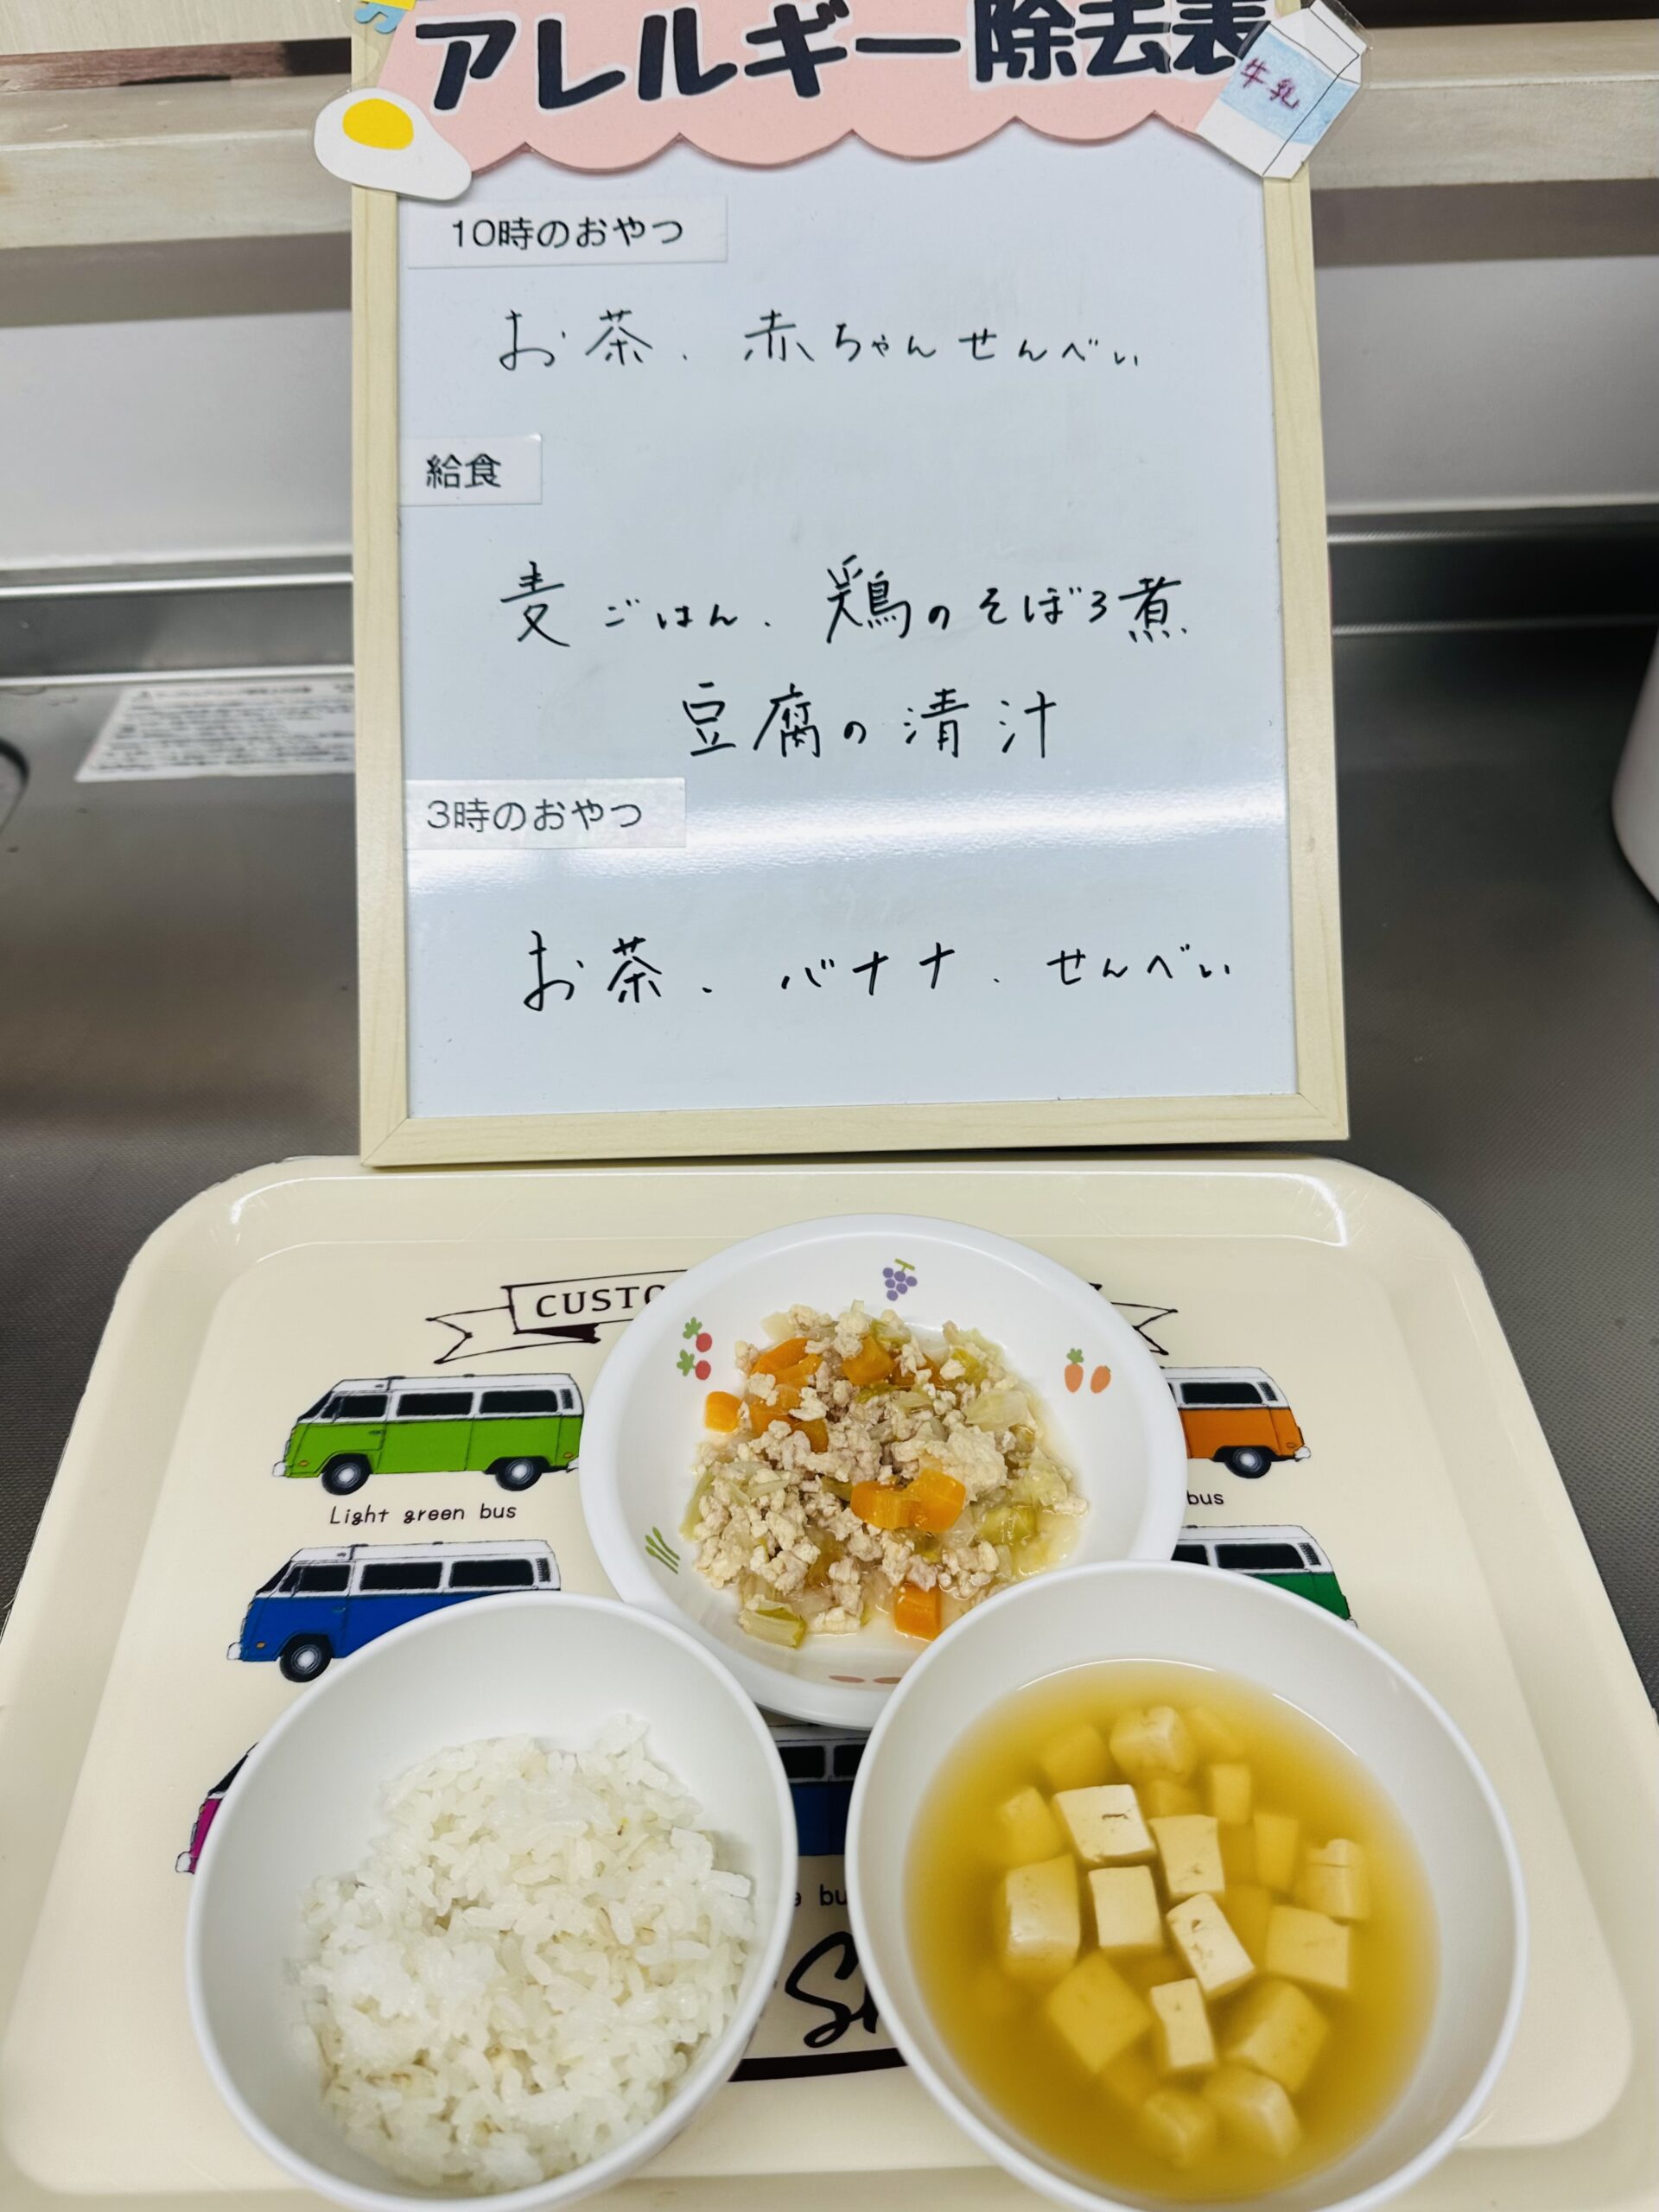 アレルギー除去表
牛乳
10時のおやつ
お茶、赤ちゃんせんべい
給食
麦ごはん、鶏のそぼろ煮
豆腐の清汁
3時のおやつ
お茶、バナナ、せんべい
CUSTO
Light green bus
bus
bu